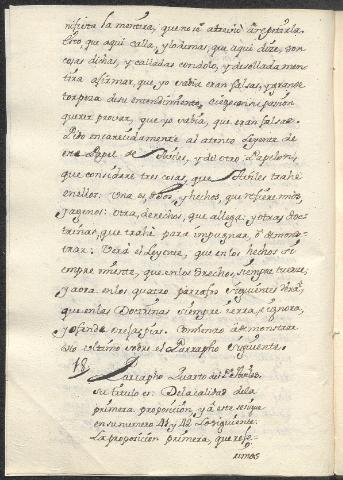 nifiesta la mentira, que no se atreviò à repetirla.
Esto, que aqui calla, y lo demas, que aqui dize, son
cosas dichas, y calladas con dolo, y desollada men-
tira afirmar, que yo sabia eran falsas, y grande
torpeza de su entendimiento, ciego con su passion
querer provar, que yo sabia, que eran falsas.
Pido encarecidamente al atento Leyente de
este Papel de Aviles, y del otro Papelon,
que considere tres cosas, que Aviles trahe
en ellos: Una es, dichos, y hechos, que refiere mios,
y agenos: otra, derechos, que allega: y otras doc-
trinas, que trahe para impugnar, ò demons-
trar. Verà el Leyente, que en los hechos si-
empre miente, que en los Drechos, siempre tuerce,
y aora en los quatro parrafos siguientes verà,
que en las Doctrinas siempre yerra, è ignora,
y ofende orejas pias. Comienzo à demonstrar
esto ultimo sobre el Parrapho siguiente.
18 Parrapho Quarto del Pe. Aviles.
su titulo es: De la calidad de la
primera proposicion, y à este se sigue
en su numero 41 y 42 Lo siguiente:
La proposicion primera, que refe-
rimos